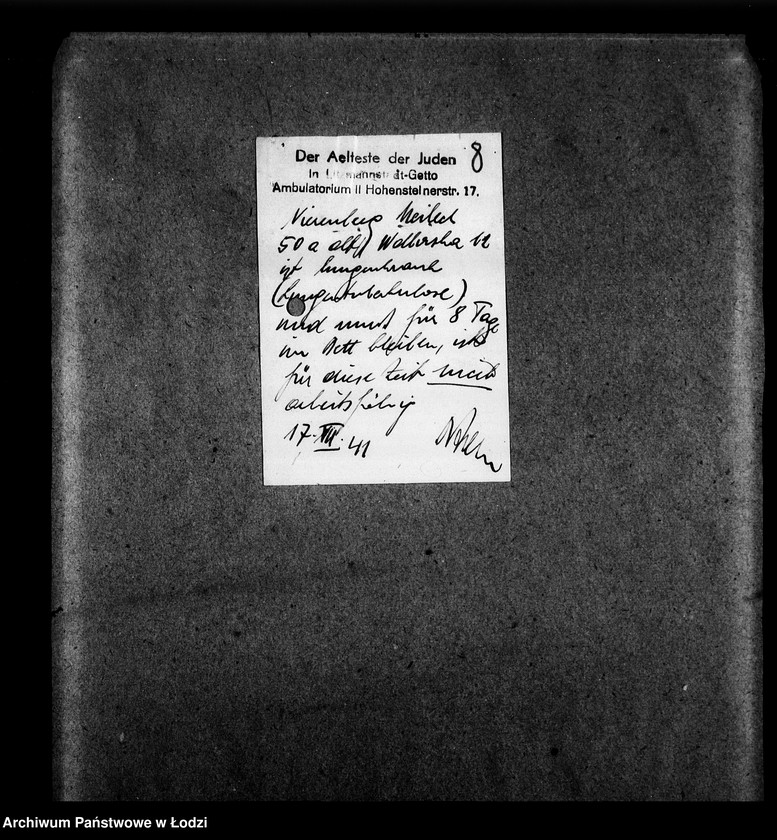 Der Aelteste der Juden 8
in Litzmannstadt-Getto
Ambulatorium II Hohensteinerstr. 17.
Nierenberg Meilech
50 a alt,
ist lungenkrank
(Lungentuberkulose)
und muss für 8 Tage
im Bett bleiben, ist
für diese Zeit nicht
arbeitsfähig
17. VII. 41
Archiwum Państwowe w Łodzi